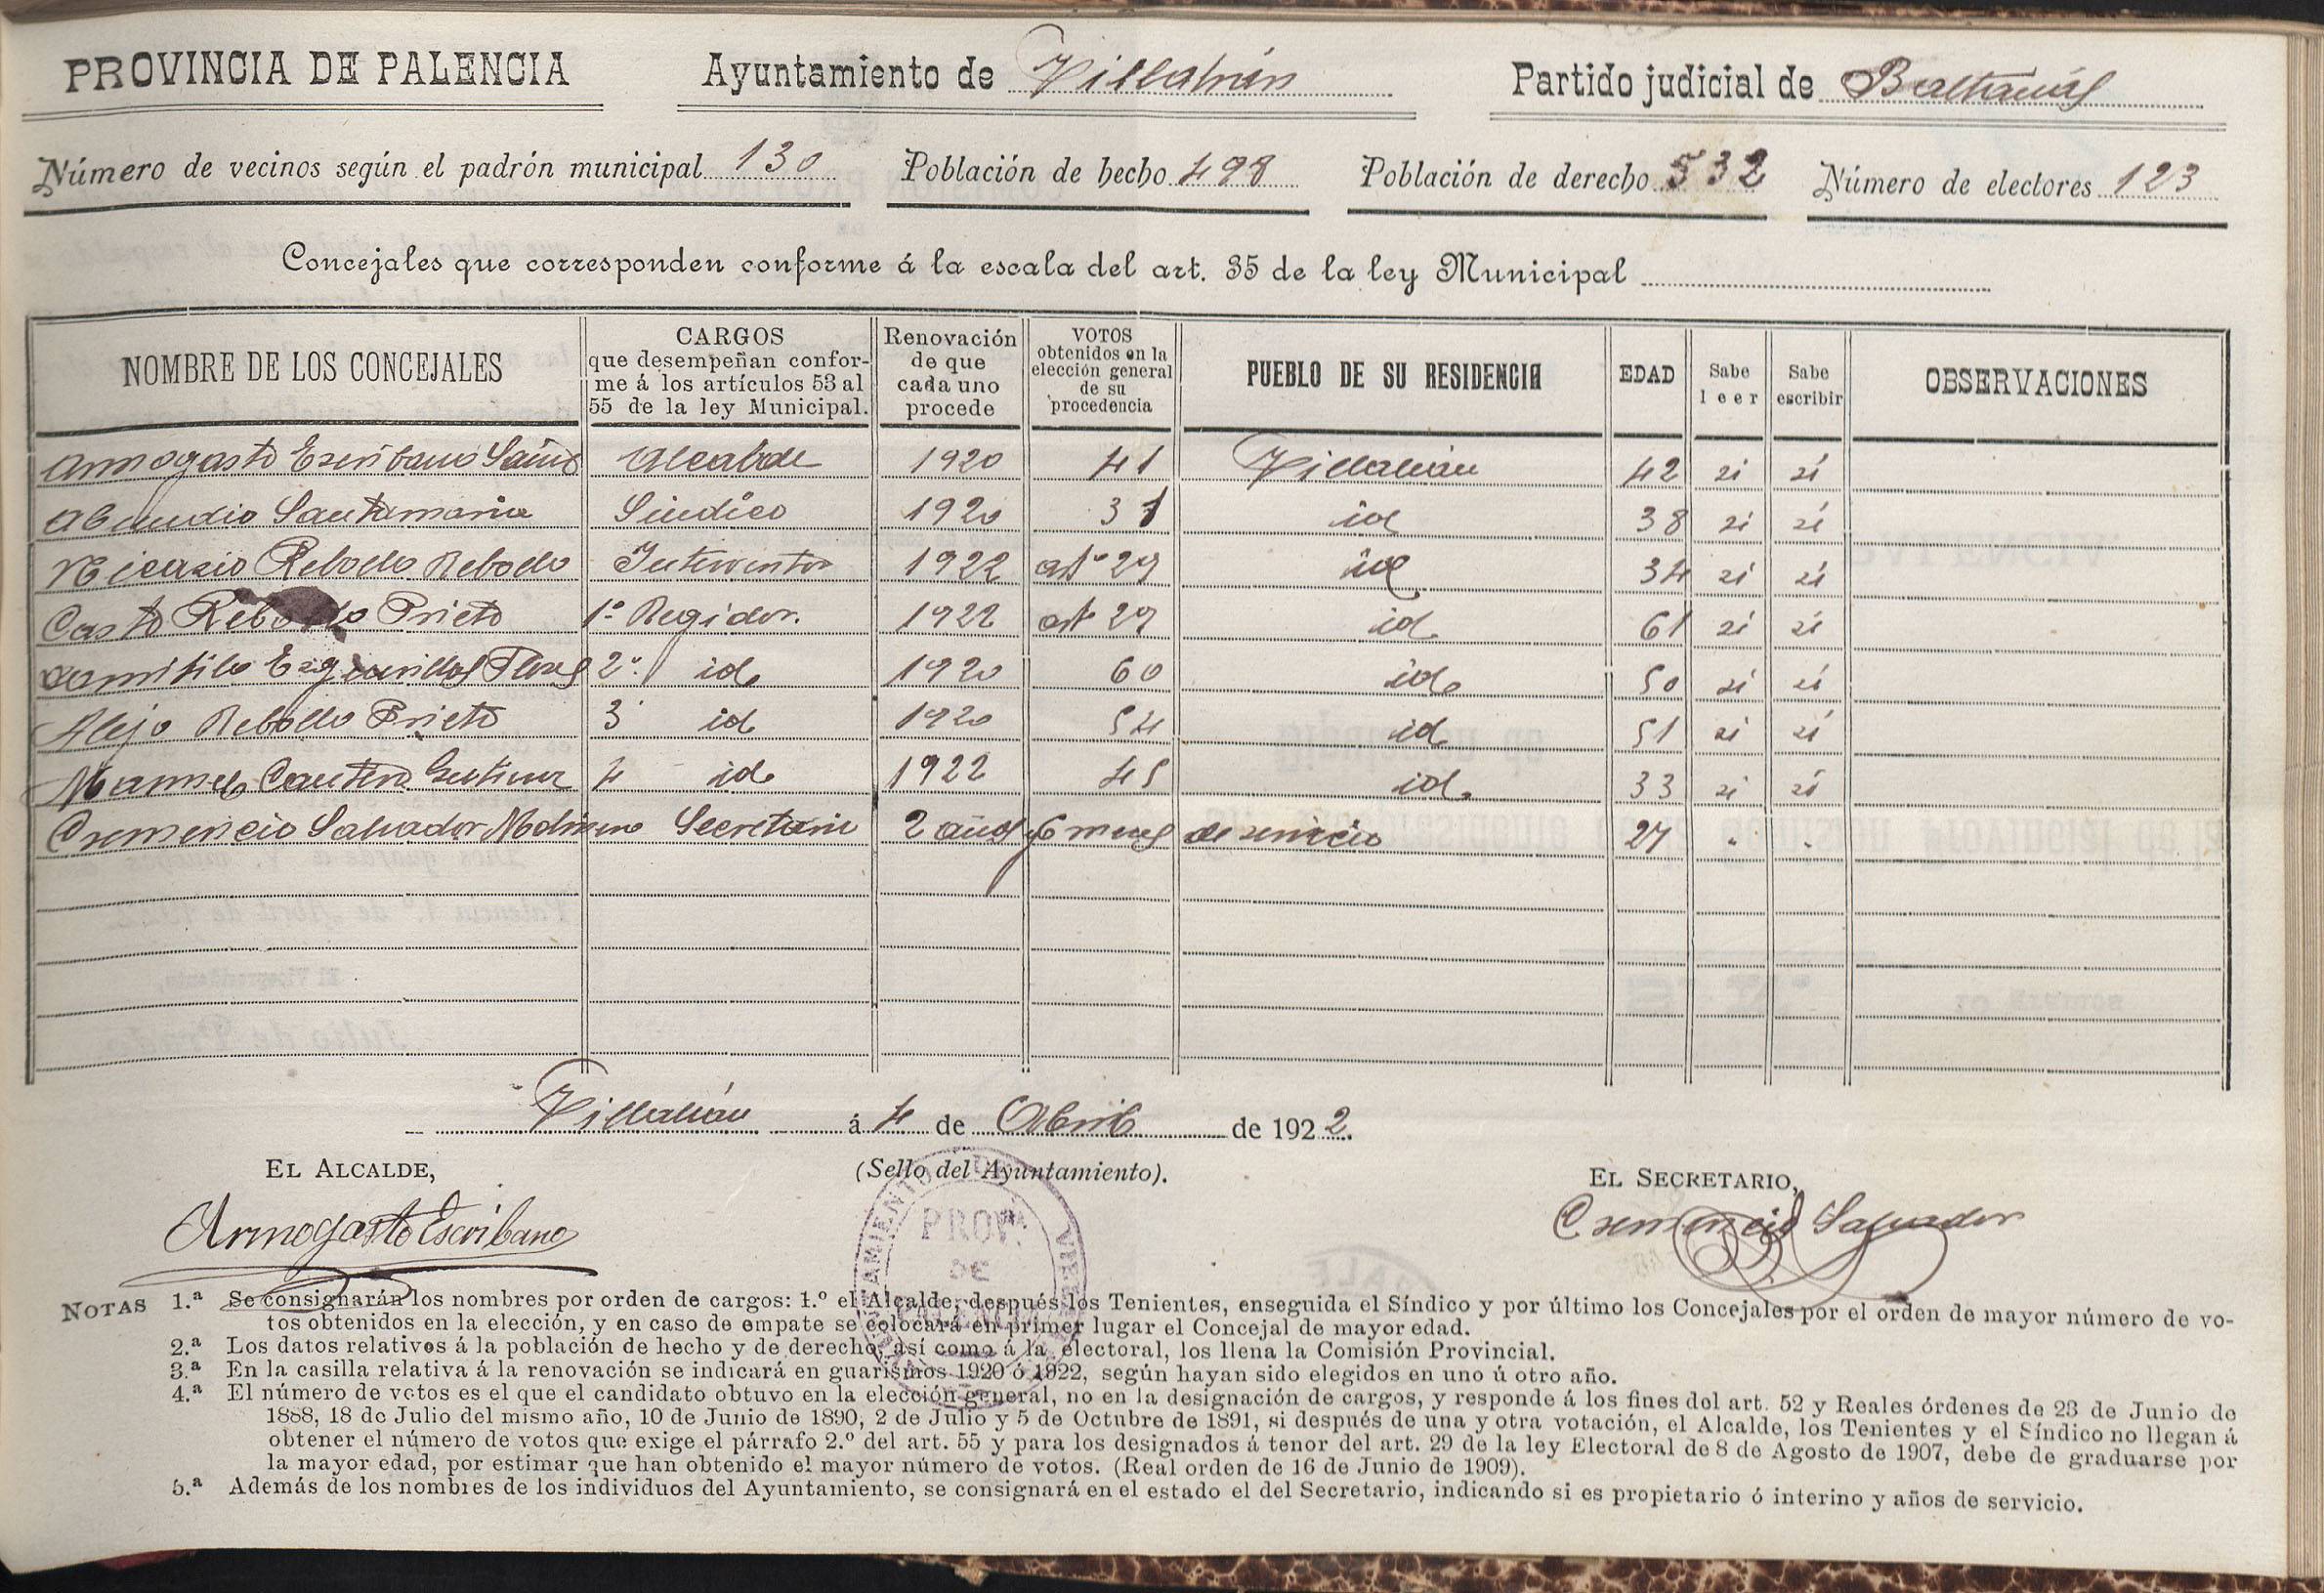 PROVINCIA DE PALENCIA Ayuntamiento de Villahán Partido judicial de Baltanás
Número de vecinos según el padrón municipal 130 Población de hecho 498 Población de derecho 532 Número de electores 123
Concejales que corresponden conforme á la escala del art. 35 de la ley Municipal
NOMBRE DE LOS CONCEJALES
CARGOS
que desempeñan confor-
me á los artículos 53 al
55 de la ley Municipal.
Renovación
de que
cada uno
procede
VOTOS
obtenidos en la
elección general
de su
procedencia
PUEBLO DE SU RESIDENCIA
EDAD
Sabe
leer
Sabe
escribir
OBSERVACIONES
Armogasto Escribano Sainz Alcalde 1920 41 Villahán 42 si si
Abundio Santamaria Sindico 1920 31 id 38 si si
Nicasio Rebollo Rebollo Interventor 1922 artº 29 id 34 si si
Casto Rebollo Prieto 1º Regidor. 1922 art 29 id. 61 si si
Domitilo Esguevillas Flores 2º id. 1920 60 id. 50 si si
Alejo Rebollo Prieto 3 id 1920 54 id. 51 si si
Manuel Cantera Gutierrez 4 id. 1922 45 id. 33 si si
Cremencio Salvador Secretario 2 años y 6 meses de servicio 27 " "
Villahán á 4 de Abril de 1922.
EL ALCALDE,
(Sello del Ayuntamiento).
EL SECRETARIO,
Armogasto Escribano
Cremencio Salvador
PROVª
DE
NOTAS 1.ª Se consignarán los nombres por orden de cargos: 1.º el Alcalde, después los Tenientes, enseguida el Síndico y por último los Concejales por el orden de mayor número de vo-
tos obtenidos en la elección, y en caso de empate se colocará en primer lugar el Concejal de mayor edad.
2.ª Los datos relativos á la población de hecho y de derecho, así como á la electoral, los llena la Comisión Provincial.
3.ª En la casilla relativa á la renovación se indicará en guarismos 1920 ó 1922, según hayan sido elegidos en uno ú otro año.
4.ª El número de votos es el que el candidato obtuvo en la elección general, no en la designación de cargos, y responde á los fines del art. 52 y Reales órdenes de 23 de Junio de
1888, 18 de Julio del mismo año, 10 de Junio de 1890, 2 de Julio y 5 de Octubre de 1891, si después de una y otra votación, el Alcalde, los Tenientes y el Síndico no llegan á
obtener el número de votos que exige el párrafo 2.º del art. 55 y para los designados á tenor del art. 29 de la ley Electoral de 8 de Agosto de 1907, debe de graduarse por
la mayor edad, por estimar que han obtenido el mayor número de votos. (Real orden de 16 de Junio de 1909).
5.ª Además de los nombres de los individuos del Ayuntamiento, se consignará en el estado el del Secretario, indicando si es propietario ó interino y años de servicio.